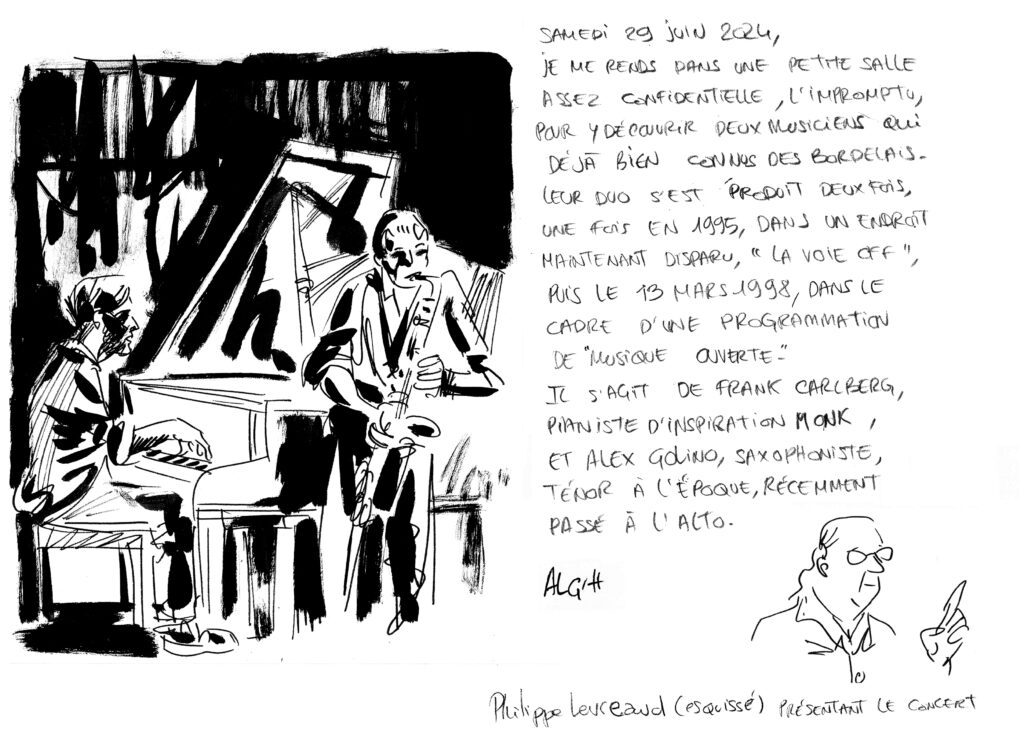 SAMEDI 29 JUIN 2024,
JE ME RENDS DANS UNE PETITE SALLE
ASSEZ CONFIDENTIELLE, L'IMPROMPTU,
POUR Y DÉCOUVRIR DEUX MUSICIENS QUI
DÉJÀ BIEN CONNUS DES BORDELAIS.
LEUR DUO S'EST PRODUIT DEUX FOIS,
UNE FOIS EN 1995, DANS UN ENDROIT
MAINTENANT DISPARU, "LA VOIE OFF",
PUIS LE 13 MARS 1998, DANS LE
CADRE D'UNE PROGRAMMATION
DE "MUSIQUE OUVERTE."
IL S'AGIT DE FRANK CARLBERG,
PIANISTE D'INSPIRATION MONK,
ET ALEX GOLINO, SAXOPHONISTE,
TÉNOR À L'ÉPOQUE, RÉCEMMENT
PASSÉ À L'ALTO.
ALGIH
Philippe (esquissé) PRÉSENTANT LE CONCERT